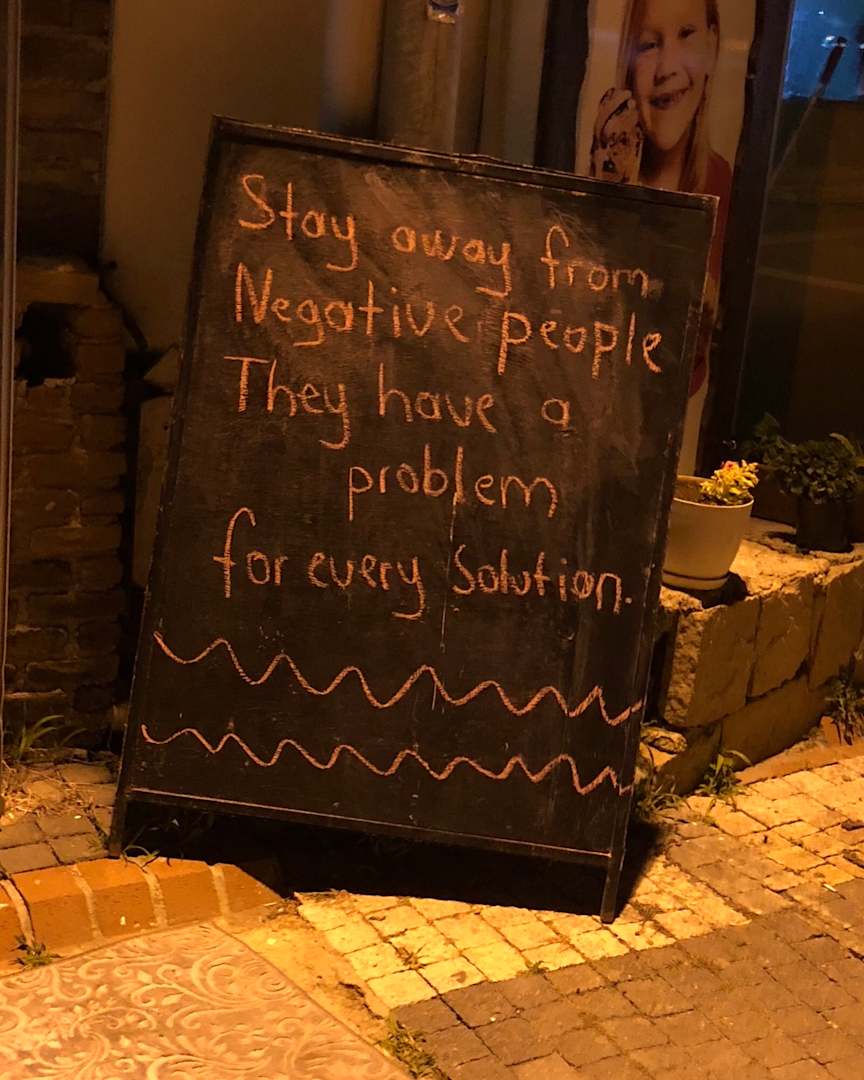 Stay away from
Negative people
They have a
problem
for every Solution.